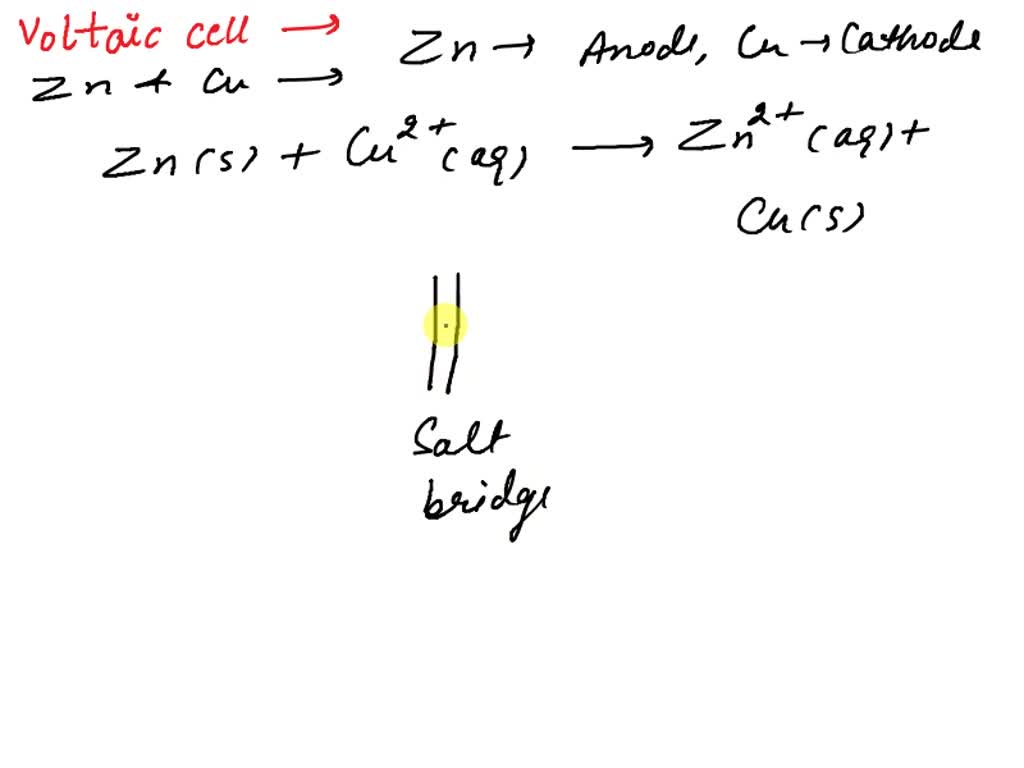 Voltaic cell →
Zn → Anode, Cu → Cathode
Zn + Cu →
Zn(s) + Cu²⁺(aq) → Zn²⁺(aq) +
Cu(s)
Salt
bridge